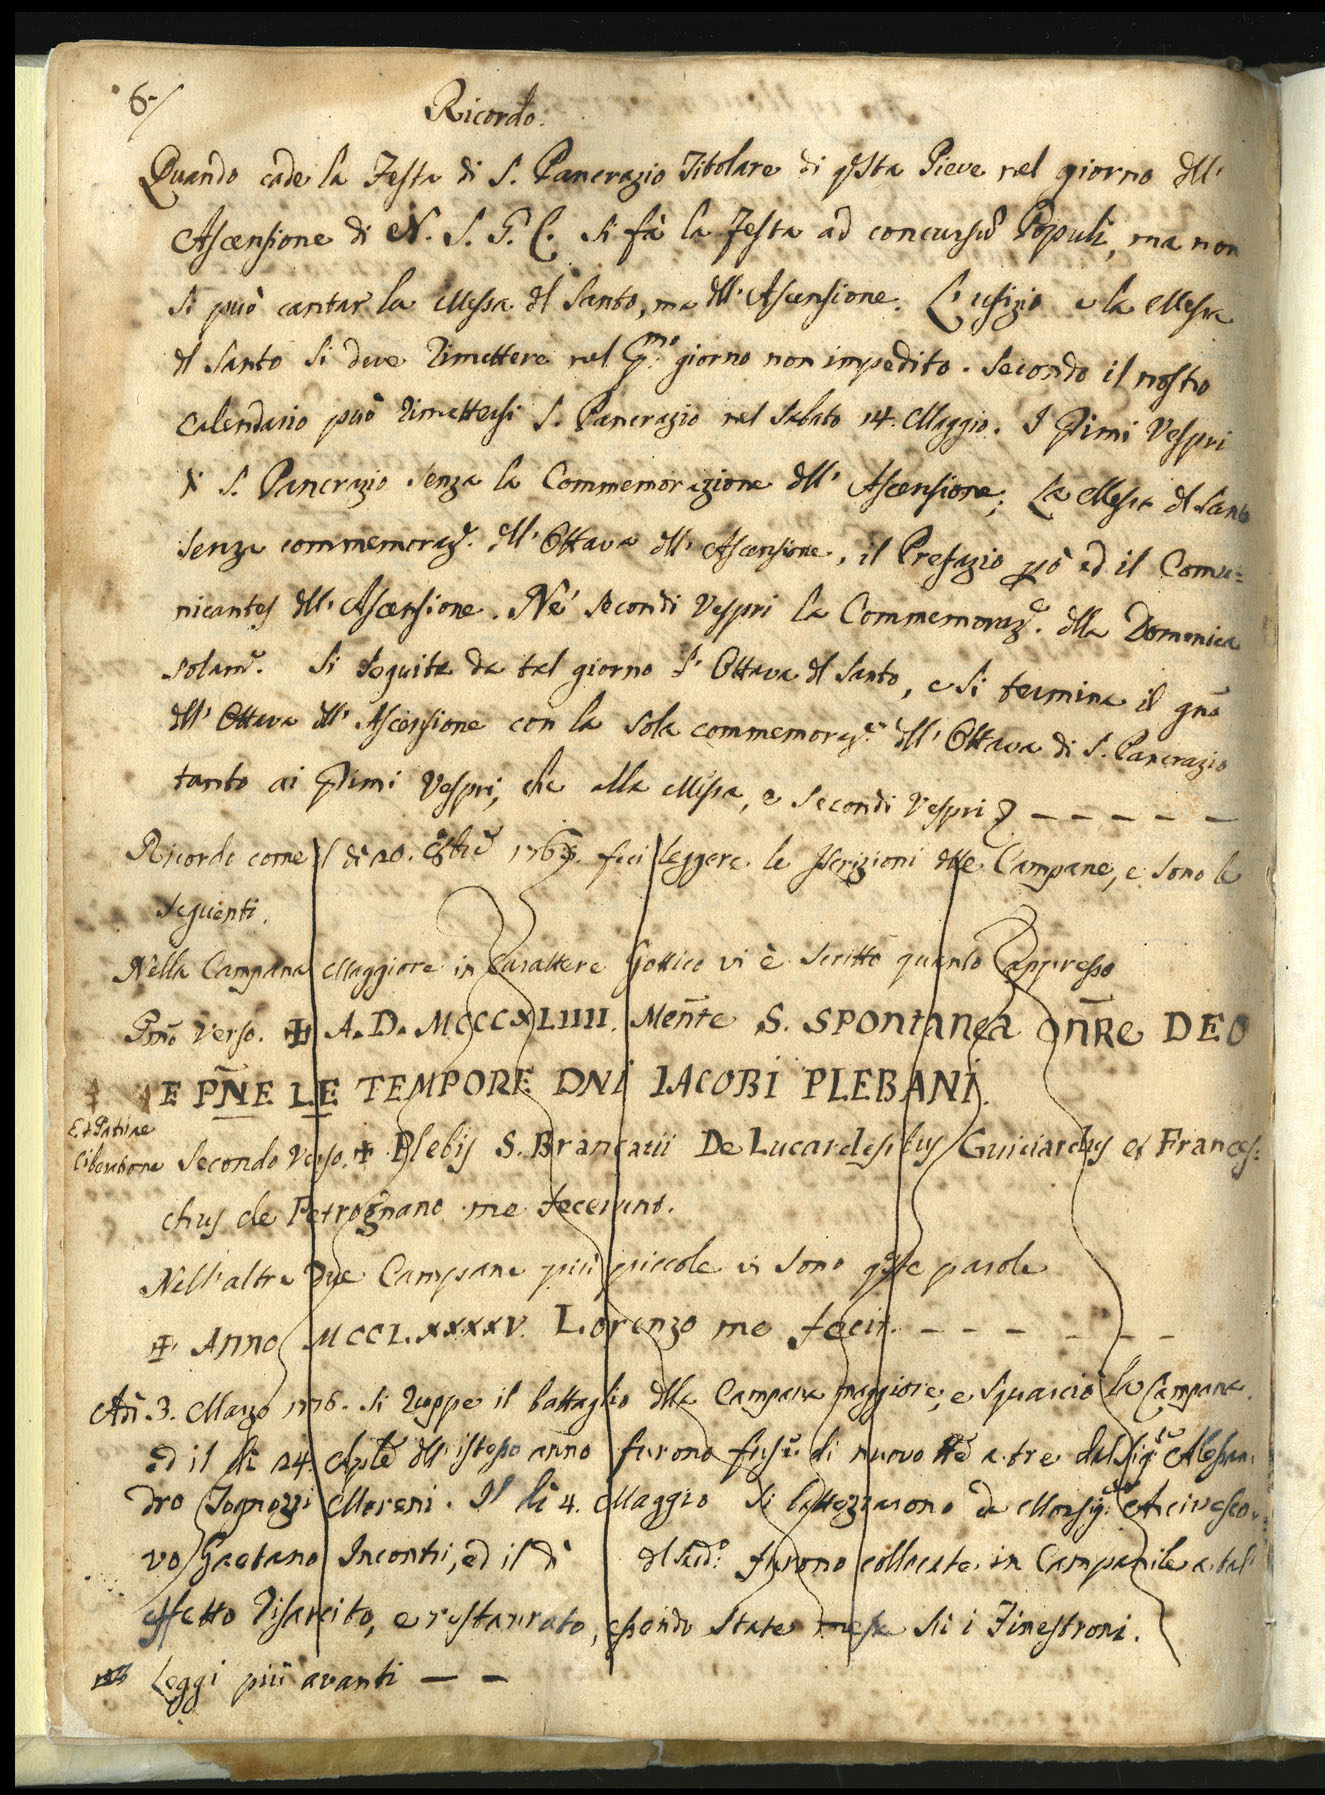 6./
Ricordo.
Quando cade la Festa di S. Pancrazio Titolare di qsta Pieve nel giorno dll'
Ascensione di N. S. G. C. si fà la festa ad concursũ Populi, ma non
si può cantar la Messa dl Santo, ma dll'Ascensione. L'ufizio e la Messa
dl Santo si deve rimettere nel Pmo. giorno non impedito. Secondo il nostro
Calendario può rimettersi S. Pancrazio nel Sabato 14. Maggio. I Primi Vespri
di S. Pancrazio senza la Commemorazione dll' Ascensione; La Messa dl Santo
senza commemoraze. dll' Ottava dll' Ascensione, il Prefazio però ed il Comu=
nicantes dll' Ascensione. Ne' secondi Vespri la Commemoraze. dlla Domenica
solame. Si seguita da tal giorno l' Ottava dl Santo, e si termina il gno
dll' Ottava dll' Ascensione con la sola commemoraze. dll' Ottava di S. Pancrazio
tanto ai Primi Vespri, che alla Messa, e Secondi Vespri — — — — —
Ricordo come l dì 20. 176 . feci leggere le Iscrizioni dlle Campane, e sono le
seguenti.
Nella Campana Maggiore in Carattere Gottico vi è scritto quanto appresso
Pmo verso. ✠ A. D. MCCCXLIIII. Meñte S. SPONTANEA OÑRe DEO
E PÑE LE TEMPORE DNI IACOBI PLEBANI.
Et Patriae
liberatione
Secondo Verso. ✠ Plebis S. Brancatii De Lucardesibus Guiciardus et Frances=
chus de Petrognano me fecerunt.
Nell'altre due Campane più piccole vi sono qste parole
✠. Anno MCCL.XXXXV. Lorenzo me fecit. — — — — — —
Adì. 3. Marzo 1776. si ruppe il battaglio dlla Campana maggiore, e squarciò la Campana.
ed il dì 24. Aple dll'istesso anno furono fuse di nuovo tte a tre dal Sigre Alessan=
dro Tognozzi Moreni. Il dì 4. Maggio si battezzarono da Monsig. Arcivesco=
vo Gaetano Incontri, ed il dì dl sudo. furono collocate in Campanile a tal'
effetto risarcito, e restaurato, essendo state messe sù i Finestroni.
Leggi più avanti — —